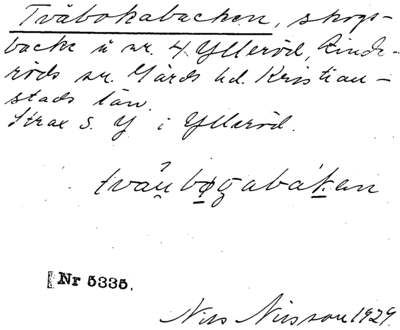 Tvåbokabacken, skogs-
backe å nr. 4 Ylleröd, Linde-
röds sn. Gärds hd. Kristian-
stads län.
Strax S. Y i Ylleröd.
tvåu̯ bo̱gabák̠an
Nr 5335.
Nils Nilsson 1929.